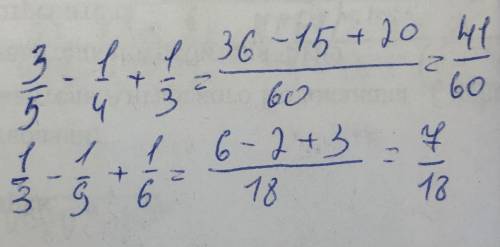 3/5 - 1/4 + 1/3 = (36 - 15 + 20)/60 = 41/60
1/3 - 1/9 + 1/6 = (6 - 2 + 3)/18 = 7/18